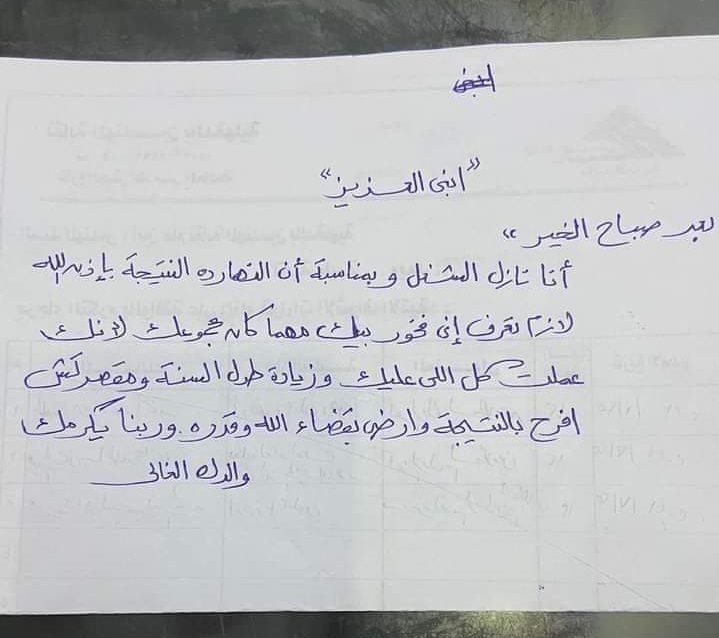 "ابنى العزيز"
بعد صباح الخير ،،
أنا نازل الشغل و بمناسبة أن النهارده النتيجة بإذن الله
لازم تعرف إنى فخور بيك مهما كان مجموعك لأنك
عملت كل اللى عليك وزيادة طول السنة ومقصرتش
افرح بالنتيجة وارضى بقضاء الله وقدره وربنا يكرمك
والدك الغالى